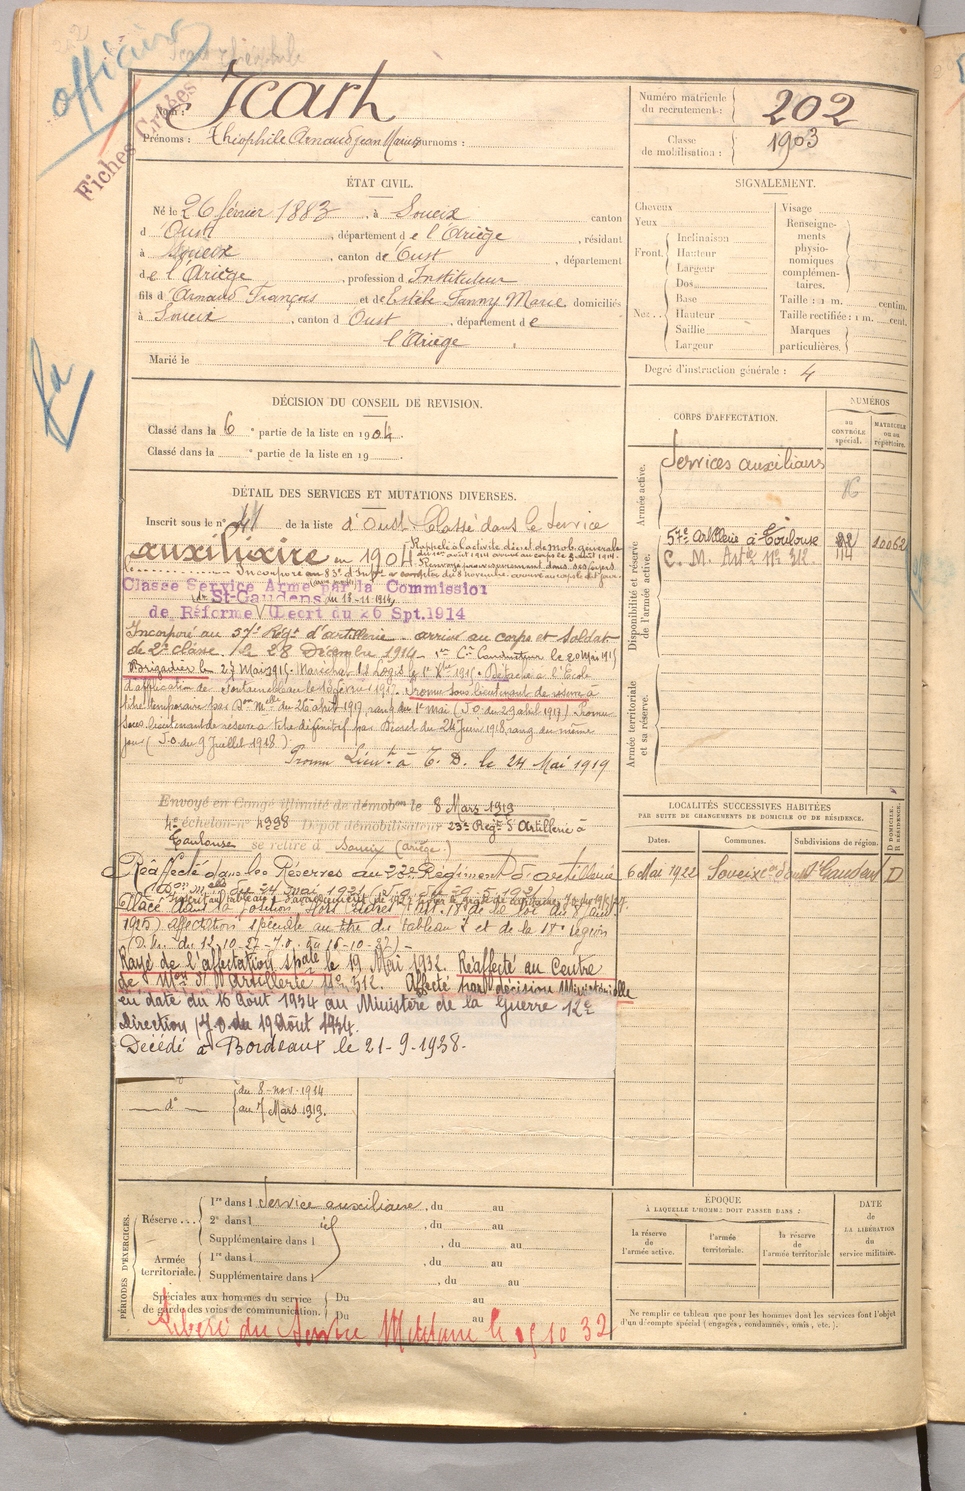 officier
Fiches Créées
Nom : Icart
Prénoms : Théophile Arnaud Jean Marius Surnoms :
Numéro matricule du recrutement : 202
Classe de mobilisation : 1903
ÉTAT CIVIL.
Né le 26 février 1883, à Soueix canton
d' Oust, département de l'Ariège, résidant
à Soueix, canton de Oust, département
de l'Ariège, profession d' Instituteur
fils d' Arnaud François et de Estèbe Fanny Marie domiciliés
à Soueix, canton d' Oust, département de
l'Ariège
Marié le
SIGNALEMENT.
Cheveux
Yeux
Front. Inclinaison
Hauteur
Largeur
Nez Dos
Base
Hauteur
Saillie
Largeur
Visage
Renseignements physionomiques complémentaires.
Taille : 1 m. centim.
Taille rectifiée : 1 m. cent.
Marques particulières.
Degré d'instruction générale : 4
DÉCISION DU CONSEIL DE REVISION.
Classé dans la 6e partie de la liste en 1904.
Classé dans la e partie de la liste en 19
CORPS D'AFFECTATION.
NUMÉROS
AU CONTRÔLE spécial.
MATRICULE ou au répertoire.
Armée active.
Services auxiliaires
Disponibilité et réserve de l'armée active.
57e Artillerie à Toulouse 10062
C. M. Artie No 312. 114
Armée territoriale et sa réserve.
DÉTAIL DES SERVICES ET MUTATIONS DIVERSES.
Inscrit sous le n° 41 de la liste d'Oust Classé dans le service
auxiliaire en 1904. Rappelé à l'activité décret de mob. générale
Classe Service Armé par la Commission
de St-Gaudens du 18-11-1914
de Réforme V. Décret du 26 Spt. 1914
Incorporé au 57e Régt d'artillerie arrivé au corps et soldat
de 2e classe, le 28 Décembre 1914. 1er Cr Conducteur le 20 Mai 1915
Brigadier le 27 Mai 1915. Maréchal des Logis le 1er Xbre 1915. Détaché à l'École
d'application de Fontainebleau le 15 Février 1917. Promu sous-lieutenant de réserve à
titre temporaire par Don Mlle du 26 abril 1917, rang du 1er Mai (J.O du 29 abril 1917) Promu
sous lieutenant de réserve à titre définitif par Décret du 24 Juin 1918, rang du même
jour (J.O. du 9 Juillet 1918)
Promu Lieut. à T. D. le 24 Mai 1919
Envoyé en Congé illimité de démobon le 8 Mars 1919
4e échelon no 4998 Dépôt démobilisateur 23e Régt d'Artillerie à
Toulouse se retire à Soueix (Ariège)
Réaffecté dans les Réserves au 23e Régiment d'artillerie
(Don Mlle du 24 mai 1921 (J.O. du 29-5-1921)
Placé dans la position Hors Cadres (Art. 18 de la loi du 8 Janv
1925) affectation spéciale au titre du tableau I et de la 17e région
Rayé de l'affectation spale le 19 Mai 1932. Réaffecté au Centre
de Mon d'Artillerie No 312. Affecté par décision Ministérielle
en date du 16 Août 1934 au Ministère de la Guerre 12e
Direction (J.O du 19 Août 1934.
Décédé à Bordeaux le 21-9-1938.
du 8-nov-1914
do au 7 Mars 1919.
LOCALITÉS SUCCESSIVES HABITÉES
PAR SUITE DE CHANGEMENTS DE DOMICILE OU DE RÉSIDENCE.
Dates. Communes. Subdivisions de région. D DOMICILE. R RÉSIDENCE.
6 Mai 1922 Soueix con d'Oust St Gaudens D
PÉRIODES D'EXERCICES.
Réserve... 1re dans l Service auxiliaire, du au
2e dans l , du au
Supplémentaire dans l , du au
Armée territoriale. 1re dans l , du au
Supplémentaire dans l , du au
Spéciales aux hommes du service de garde des voies de communication. Du au
Du au
Libéré du Service Militaire le 15 10 32
ÉPOQUE
À LAQUELLE L'HOMME DOIT PASSER DANS :
la réserve de l'armée active. l'armée territoriale. la réserve de l'armée territoriale
DATE de LA LIBÉRATION du service militaire.
Ne remplir ce tableau que pour les hommes dont les services font l'objet
d'un décompte spécial (engagés, condamnés, omis, etc.).